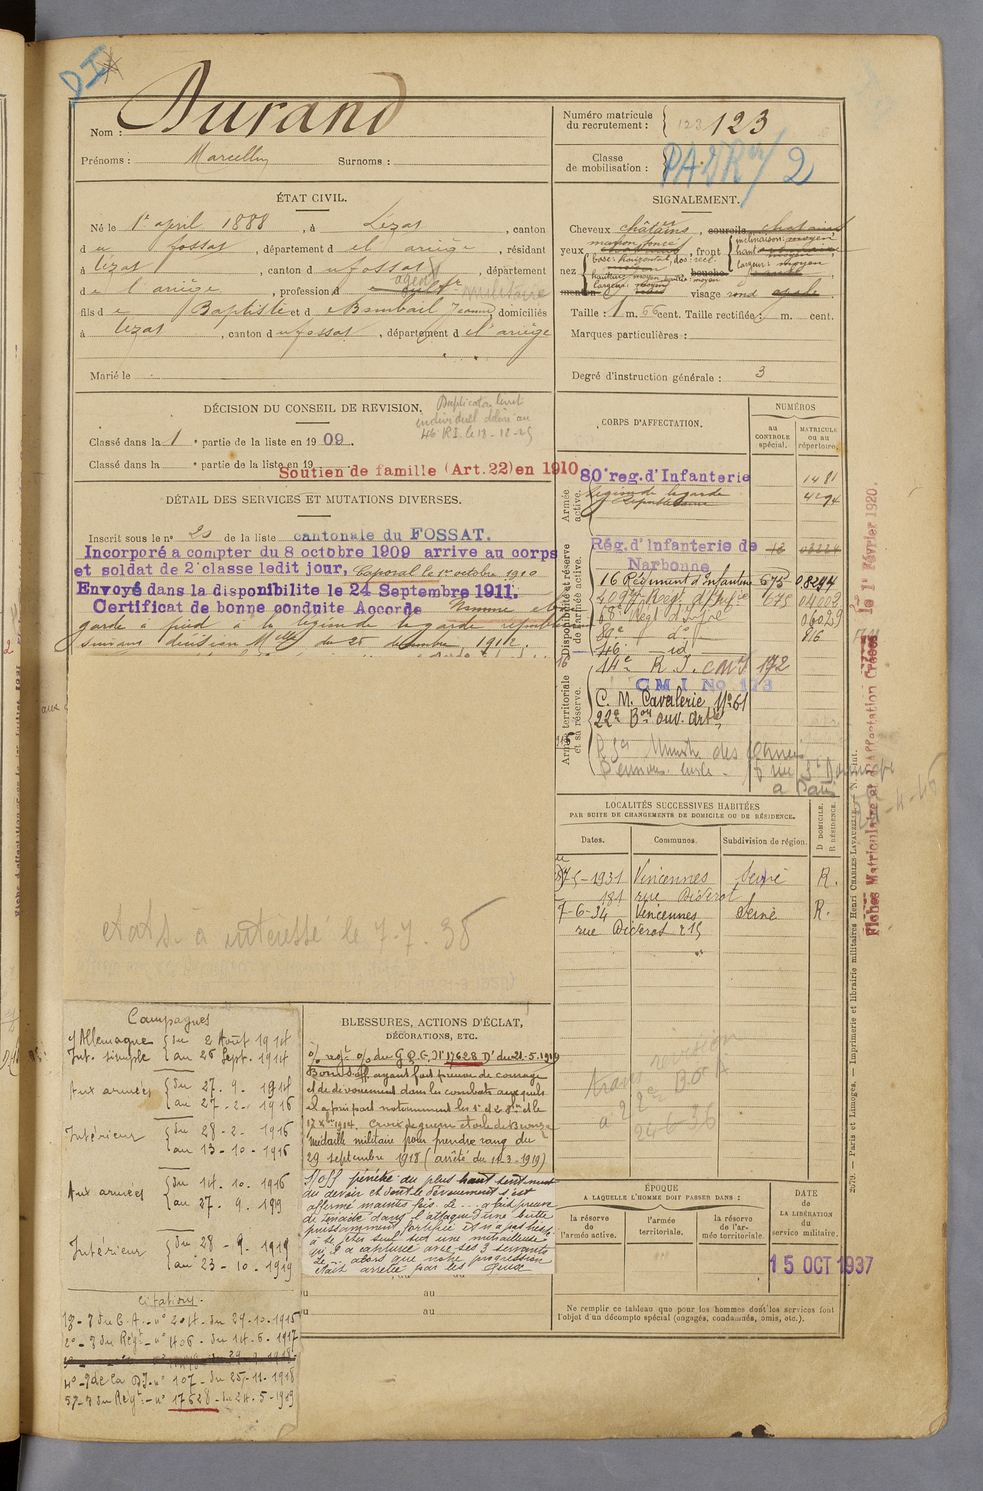 DI
Nom : Durand
Prénoms : Marcellin Surnoms :
Numéro matricule du recrutement : 123 123
Classe de mobilisation : 2
ÉTAT CIVIL.
Né le 1er april 1888, à Lézat, canton
du fossat, département de l'ariège, résidant
à lézat, canton du fossat, département
de l'ariège, profession d agent militaire
fils de Baptiste et de Bombail Jeanne, domiciliés
à lezat, canton du fossat, département de l'ariège
Marié le
SIGNALEMENT.
Cheveux châtains, sourcils chatains
yeux marron foncé, front inclinaison: moyen
haut: moyen
largeur: moyen
nez base: horizontal, dos: rect.
hauteur: moyen bouche moyen
largeur: moyen
menton visage rond ovale
Taille : 1 m. 66 cent. Taille rectifiée : m. cent.
Marques particulières :
Degré d'instruction générale : 3
DÉCISION DU CONSEIL DE REVISION.
Duplicata livret
individuel délivré au
46 R.I. le 18-12-25
Classé dans la 1e partie de la liste en 1909.
Classé dans la e partie de la liste en 19
Soutien de famille (Art. 22) en 1910
DÉTAIL DES SERVICES ET MUTATIONS DIVERSES.
Inscrit sous le n° 20 de la liste cantonale du FOSSAT.
Incorporé a compter du 8 octobre 1909 arrive au corps
et soldat de 2e classe ledit jour, Caporal le 1er octobre 1910
Envoyé dans la disponibilite le 24 Septembre 1911.
Certificat de bonne conduite Accorde Nommé
garde à pied à la légion de la garde républicaine
suivant décision Mlle du 25 1912.
CORPS D'AFFECTATION.
NUMÉROS
au CONTROLE spécial.
MATRICULE ou au répertoire.
Armée active.
80e reg. d'Infanterie 1481
Légion de la garde Républicaine 4294
Disponibilité et réserve de l'armée active.
Rég. d'Infanterie de Narbonne
16 Régiment d'Infanterie 675 08294
209e Reg. d'Inf 675 04002
68e Regt d'Inf 06029
89e do 816
46e id
Armée territoriale et sa réserve.
14e R. I. 172
C M I No 173
C. M. Cavalerie N° 61
22e Bon ouv. Artie
a Paris
LOCALITÉS SUCCESSIVES HABITÉES
PAR SUITE DE CHANGEMENTS DE DOMICILE OU DE RÉSIDENCE.
Dates. Communes. Subdivision de région. D DOMICILE. R RÉSIDENCE.
1931 Vincennes Seine R.
181 rue Diderot
7-6-34 Vincennes Seine R.
rue Diderot 215
Fiches Matriculaire et d'Affectation Créées le 1er Février 1920.
2579. — Paris et Limoges. — Imprimerie et librairie militaires Henri CHARLES-LAVAUZELLE.
intéressé le 7-7-38
Campagnes
c/ Allemagne { du 2 Août 1914
Int. simple { au 26 Sept. 1914
Aux armées { du 27-9-1914
{ au 27-2-1916
Intérieur { du 28-2-1916
{ au 13-10-1916
Aux armées { du 14-10-1916
{ au 27-9-1919
Intérieur { du 28-9-1919
{ au 23-10-1919
Citations.
1°- du C.A. - n° 204 - du 29-10-1915
2°- du Regt - n° 406 - du 14-6-1917
4°- de la D.I. n° 107 - du 25-11-1918
5°- du Regt - n° 17628 - du 21-5-1919
BLESSURES, ACTIONS D'ÉCLAT,
DÉCORATIONS, ETC.
du G.Q.G. N° 17628 D" du 21-5-1919
Bon s/off ayant fait preuve de courage
et de dévouement dans les combats auxquels
il a pris part notamment les 1er et 2 8bre et le
17 Xbre 1914. Croix de guerre étoile de Bronze
médaille militaire pour prendre rang du
29 septembre 1918 (arrêté du 11-3-1919)
S/off pénétré du plus haut sentiment
du devoir et dont le dévouement s'est
affirmé maintes fois. Le ... a fait preuve
de ténacité dans l'attaque d'une butte
puissamment fortifiée et n'a pas hésité
à se jeter seul sur une mitrailleuse
qu'il a capturée avec ses 3 servants
alors que notre progression
était arrêtée par les feux
du au
du au
trans revision
à 22e B.O.A
24-6-36
ÉPOQUE
A LAQUELLE L'HOMME DOIT PASSER DANS :
la réserve de l'armée active.
l'armée territoriale.
la réserve de l'armée territoriale.
DATE de LA LIBÉRATION du service militaire.
15 OCT 1937
Ne remplir ce tableau que pour les hommes dont les services font
l'objet d'un décompte spécial (engagés, condamnés, omis, etc.).